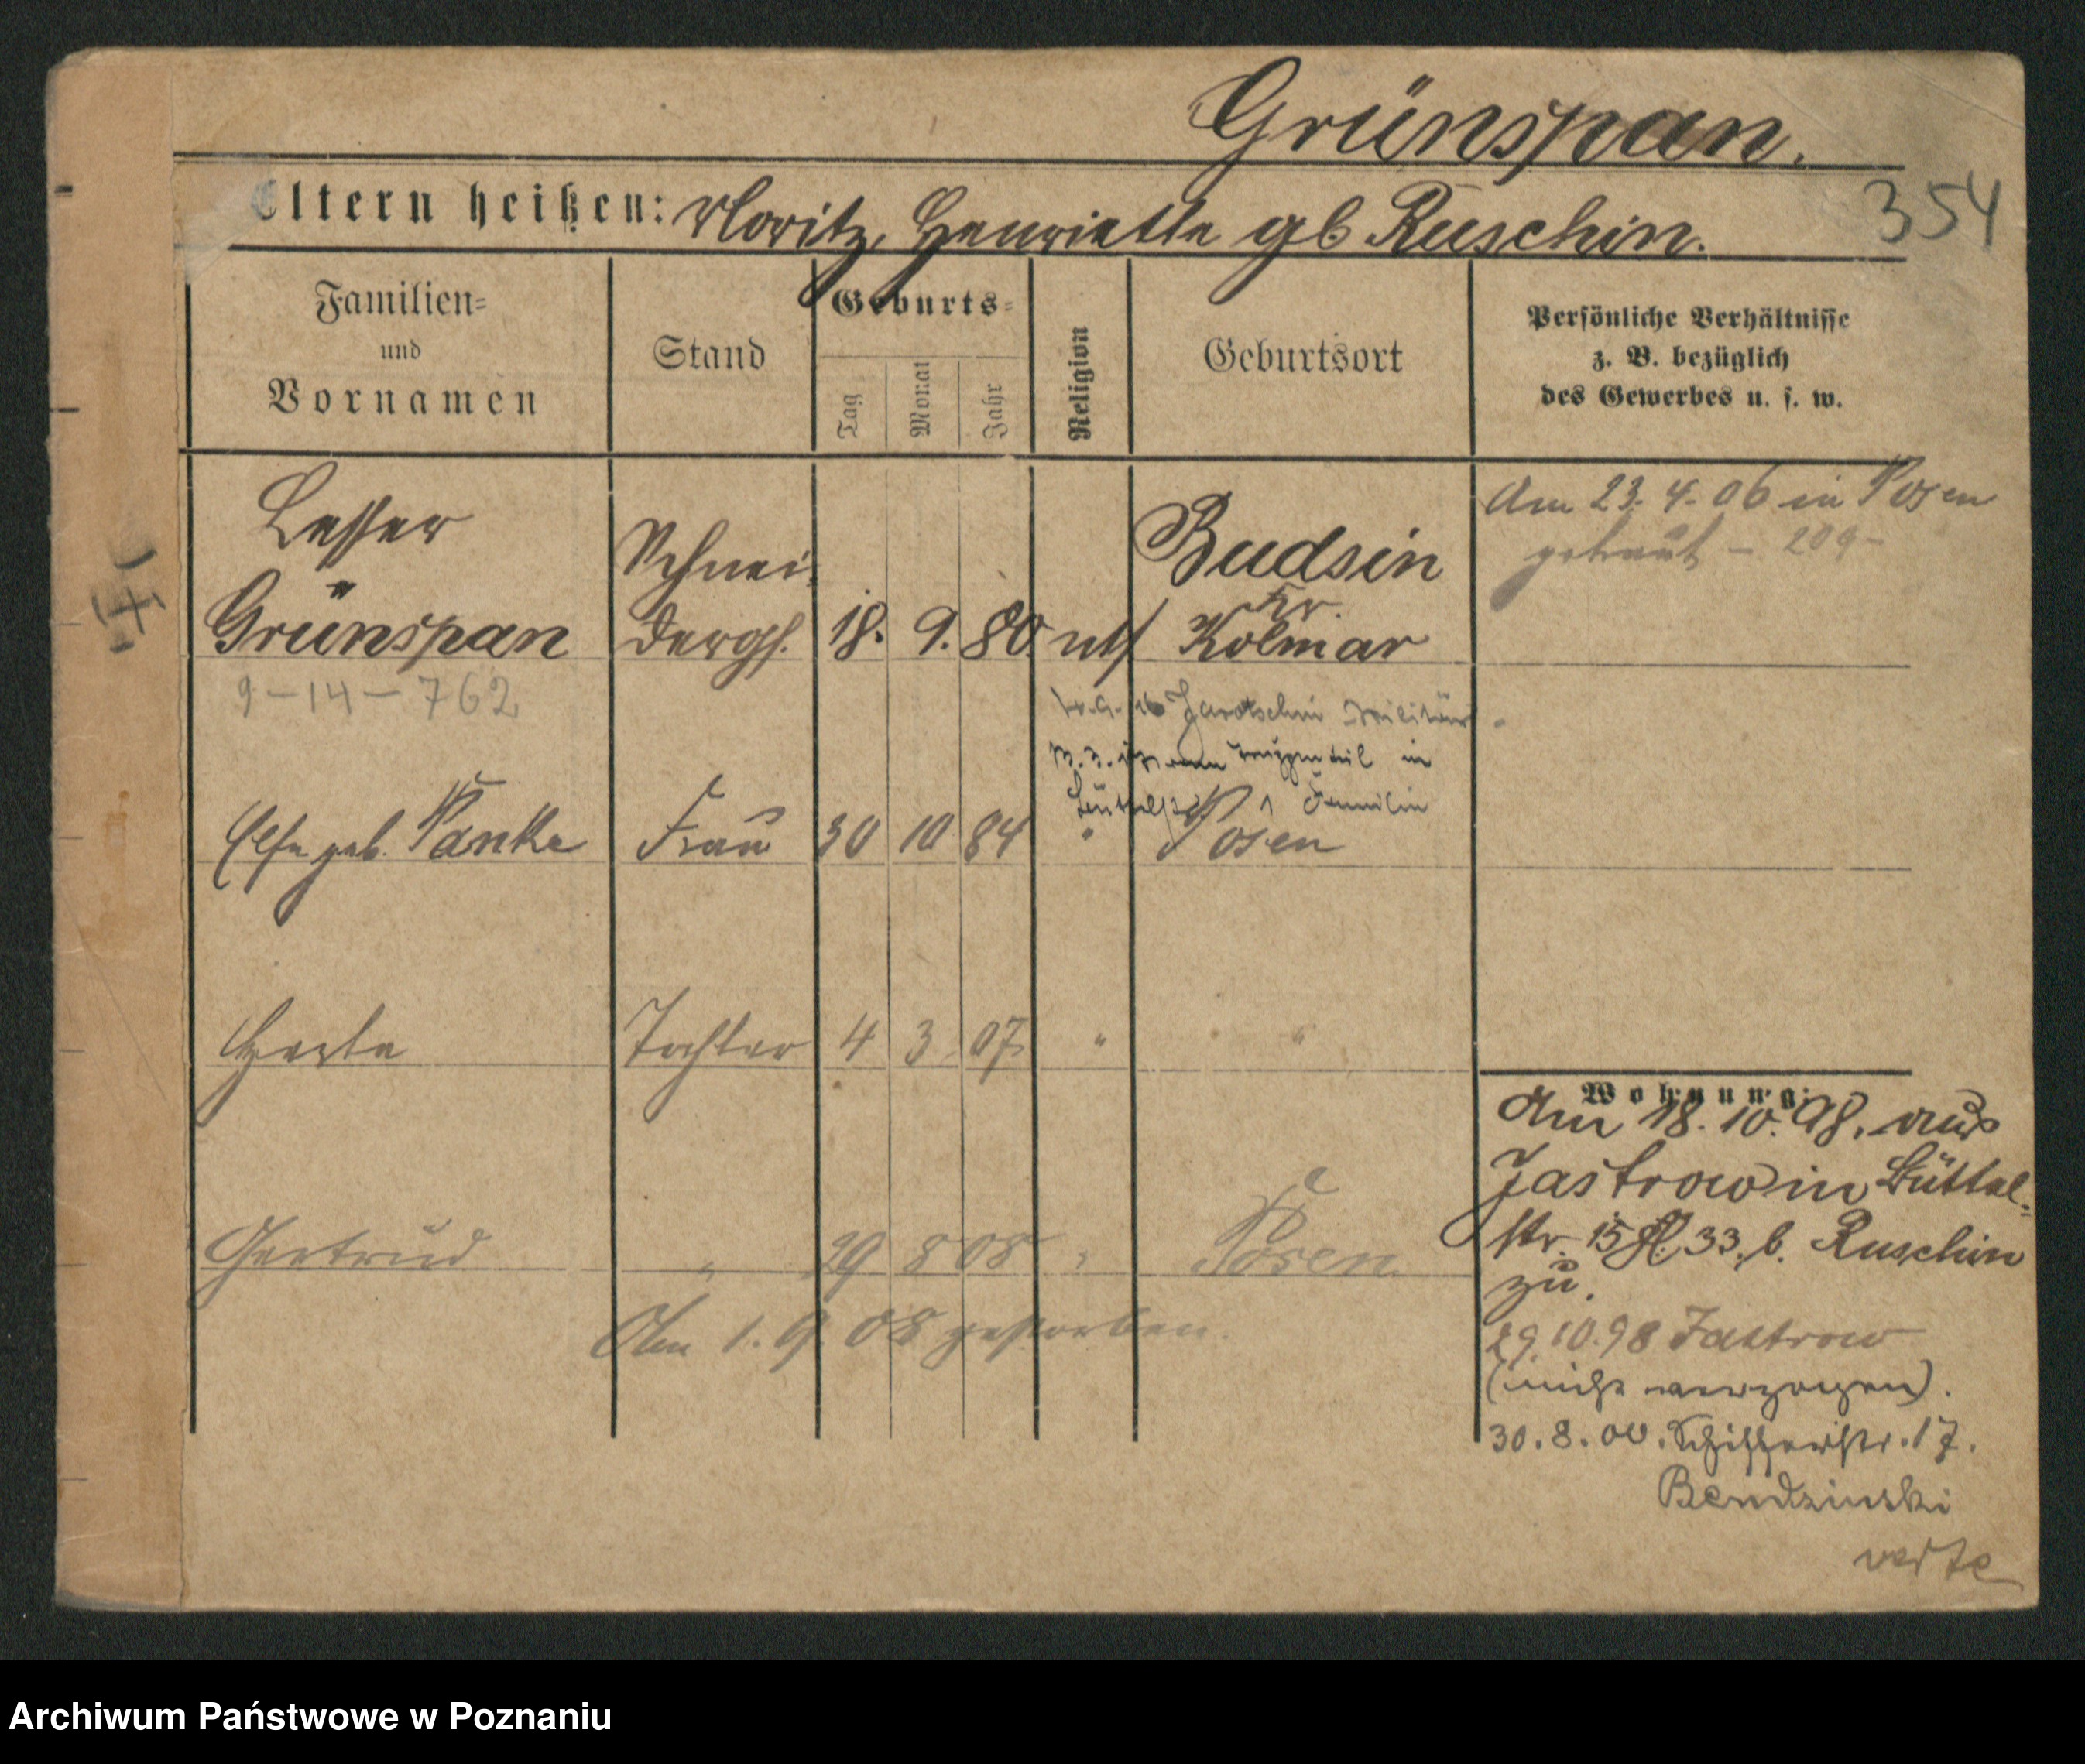 Grünspan.
354
Eltern heißen: Moritz, Henriette gb Ruschin.
Familien=
und
Vornamen
Stand
Geburts=
Tag
Monat
Jahr
Religion
Geburtsort
Persönliche Verhältnisse
z. B. bezüglich
des Gewerbes u. s. w.
Lesser
Grünspan
Schnei-
dergs.
18. 9. 80.
Budsin
Kr.
Kolmar
Am 23. 4. 06 in Posen
getraut - 209-
9-14-762
Jarotschin Militär
Truppenteil in
Familie
Else geb. Panke Frau 30 10 84 " Posen
Herta Tochter 4 3 07 " "
Gertrud " 29 8 08 " Posen
Am 1. 9 08 gestorben.
Wohnung:
Am 18. 10. 98. aus
Jastrow in Büttel-
str. 15 33. b. Ruschin
zu.
29.10.98 Jastrow
(nicht verzogen).
30.8.00. Schifferstr. 17.
Bendzinski
verte
Archiwum Państwowe w Poznaniu